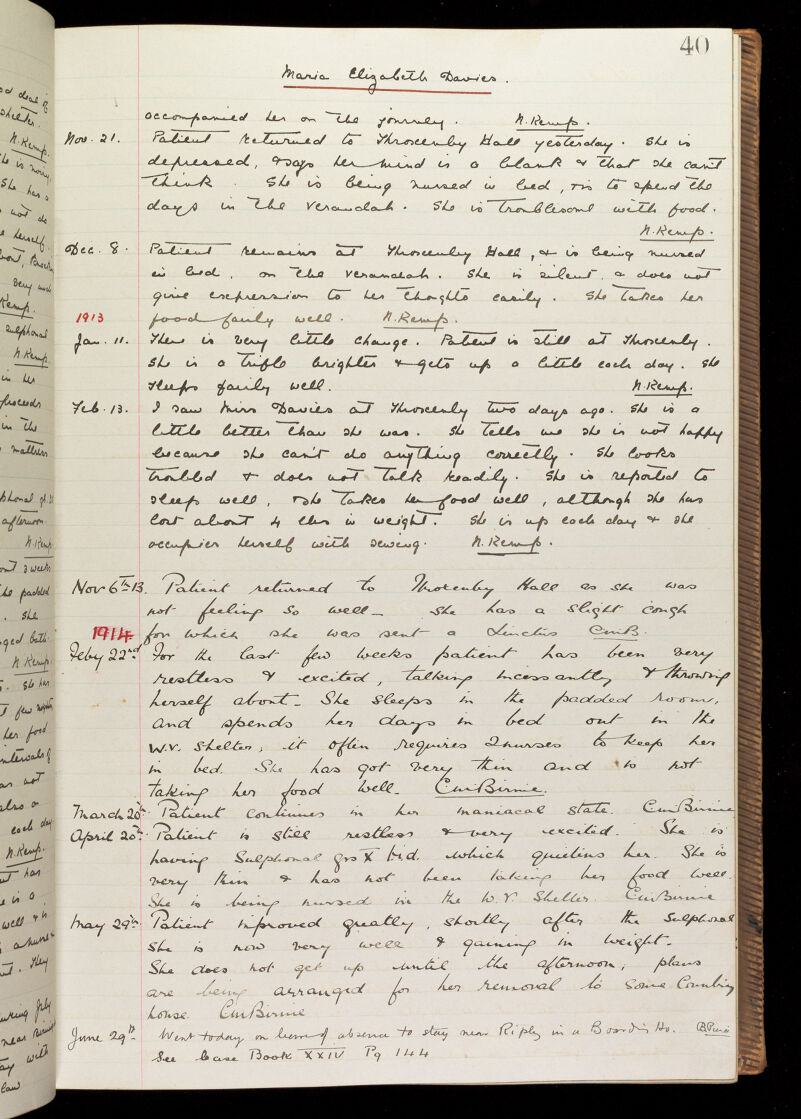 40
Maria Elizabeth Davies.
accompanied her on the journey. N. Kemp.
Nov. 21. Patient returned to Throxenby Hall yesterday. She is
depressed, & says her mind is a blank & that she can't
think. She is being nursed in bed, & is to spend the
days in the Verandah. She is troublesome with food.
N. Kemp.
Dec. 8. Patient remains at Throxenby Hall, & is being nursed
in bed, on the verandah. She is silent, & does not
give expression to her thoughts easily. She takes her
1913 food fairly well. N. Kemp.
Jan. 11. There is very little change. Patient is still at Throxenby.
She is a trifle brighter & gets up a little each day. She
sleeps fairly well. N. Kemp.
Feb. 13. I saw Miss Davies at Throxenby two days ago. She is a
little better than she was. She tells me she is not happy
because she can't do anything correctly. She looks
troubled & does not talk readily. She is reported to
sleep well, & she takes her food well, although she has
lost about 4 lbs in weight. She is up each day & she
occupies herself with sewing. N. Kemp.
Nov 6th 13. Patient returned to Throxenby Hall as she was
not feeling so well - she has a slight cough
1914 for which she was sent a Linctus CMB.
Feby 22nd For the last few weeks patient has been very
restless & excited, talking incessantly & throwing
herself about - She sleeps in the padded room,
and spends her days in bed out in the
W.V. Shelter, it often requires 2 nurses to keep her
in bed. She has got very thin and is not
taking her food well. CM Birnie.
March 20th Patient continues in her maniacal state. CM Birnie
April 20th Patient is still restless & very excited. She is
having Sulphonal grs X t.i.d. which quietens her. She is
very thin & has not been taking her food well.
She is being nursed in the W.V. Shelter. CM Birnie
May 29th Patient improved greatly, shortly after the Sulphonal
She is now very well & gaining in weight -
She does not get up until the afternoon, plans
are being arranged for her removal to some Country
house. CM Birnie
June 29th Went today on leave of absence to stay near Ripley in a Boardin Ho.
See Case Book XXIV Pg 144